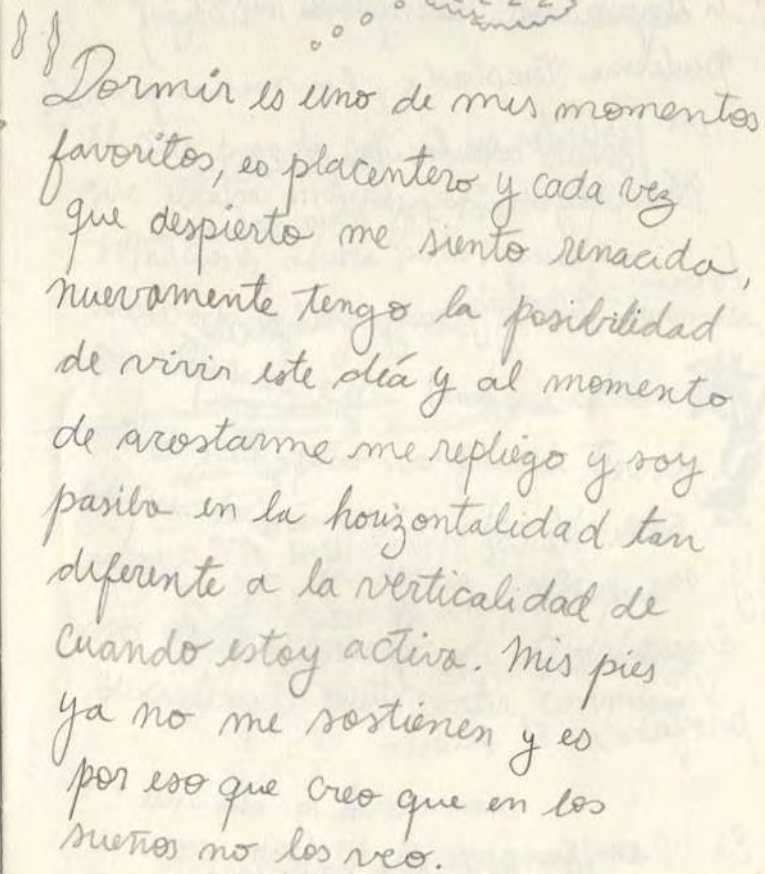 Dormir es uno de mis momentos
favoritos, es placentero y cada vez
que despierto me siento renacida,
nuevamente tengo la posibilidad
de vivir este día y al momento
de acostarme me repliego y soy
pasiba en la horizontalidad tan
diferente a la verticalidad de
cuando estoy activa. Mis pies
ya no me sostienen y es
por eso que creo que en los
sueños no los veo.